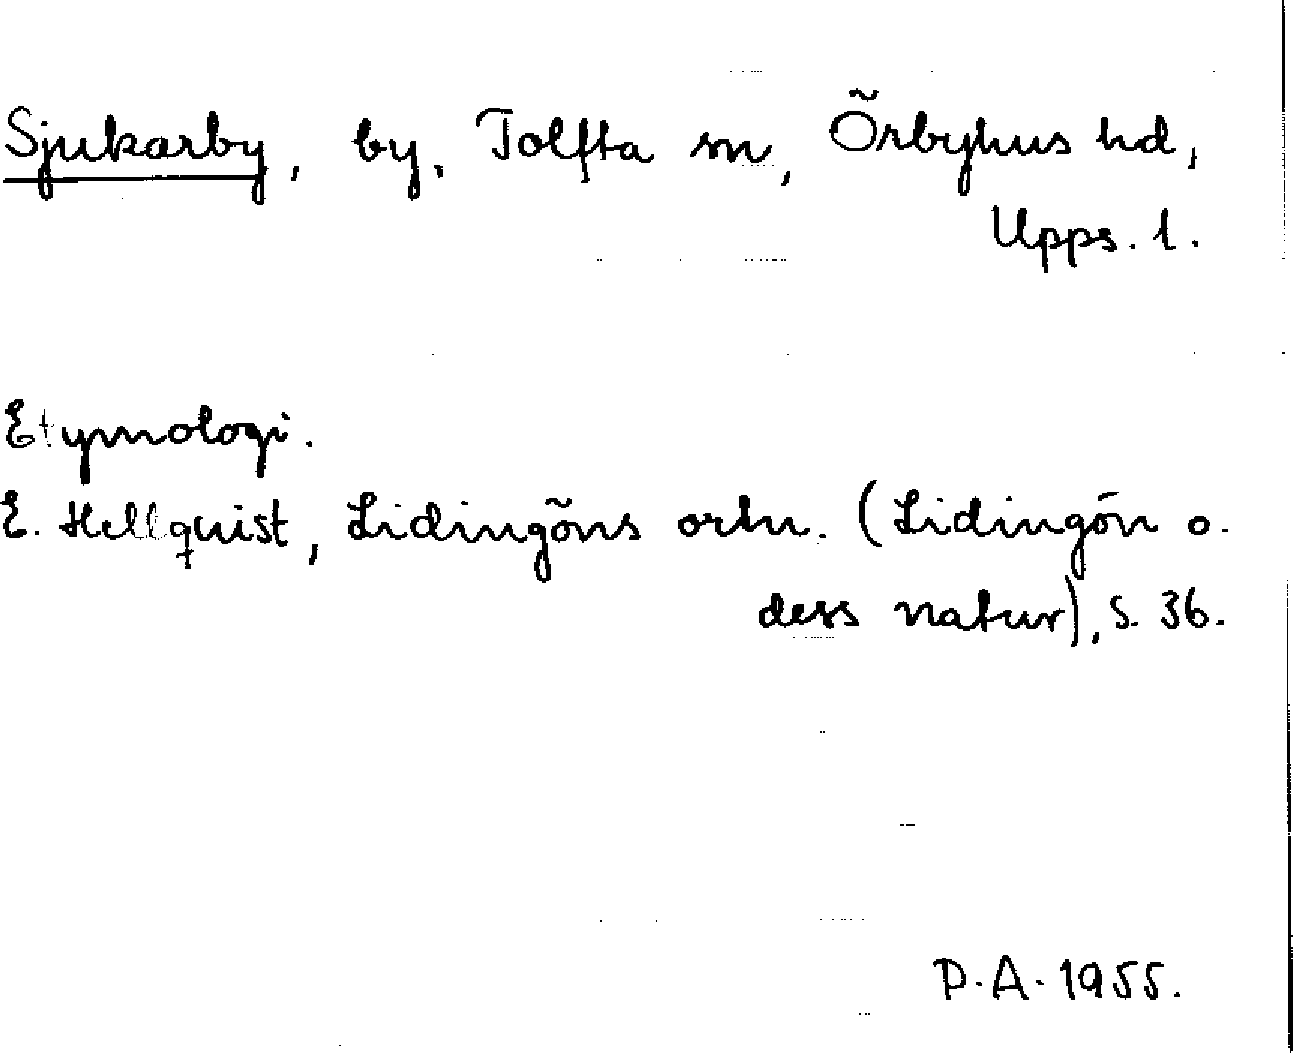 Sjukarby, by, Tolfta sn, Örbyhus hd,
Upps. l.
Etymologi.
E. Hellquist, Lidingöns ortn. (Lidingön o.
dess natur), S. 36.
P.A. 1955.